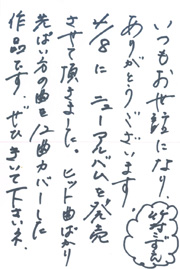 いつもお世話になり
ありがとうございます
4/8に ニューアルバムを発売
させて頂きました。ヒット曲ばかり
先ぱい方の曲を12曲カバーした
作品です。ぜひきいて下さいネ
竹村こずえ